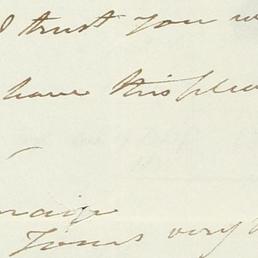 I trust you w
have this plea
Yours very